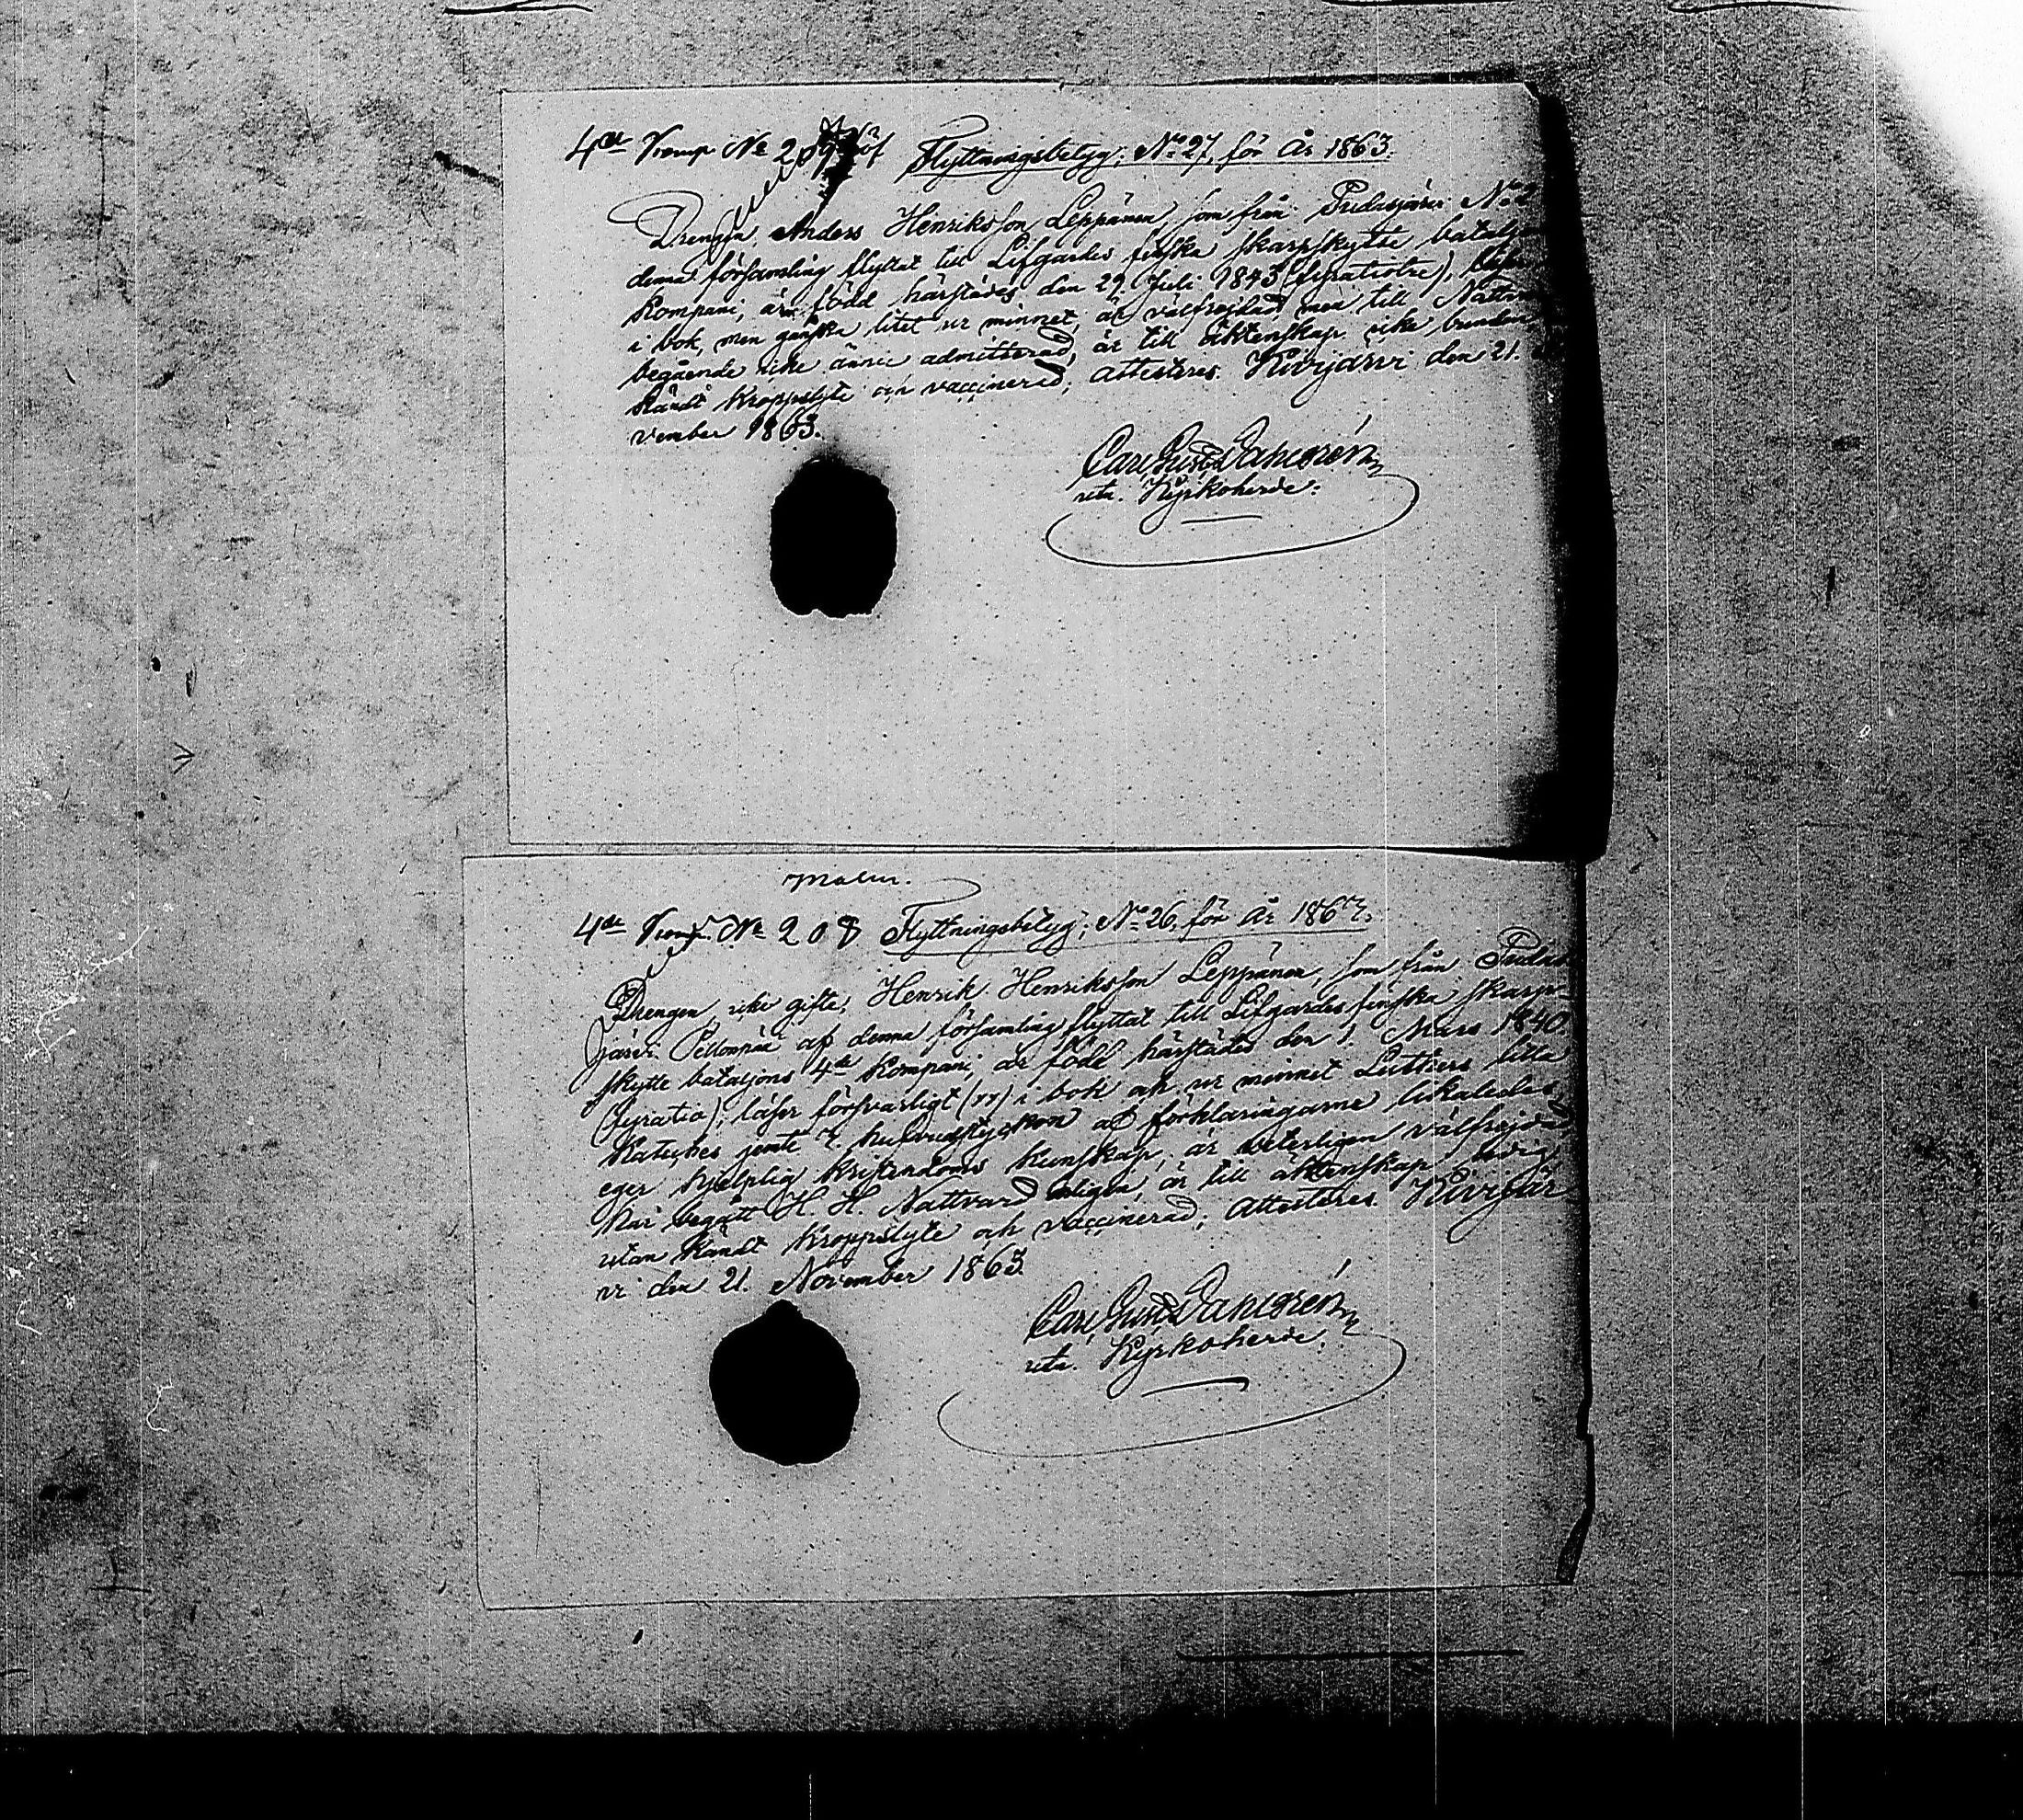 4de Komp No 209 Flyttningsbetyg; No 27, för År 1863.
Drengen, Anders Henriksson Leppänen, som från Pudasjärvi No 2
denna församling flyttat till Lifgardes finska skarpskytte bataljo
Kompani, är född härstädes den 29 Juli 1843 (fyratiotre),
i bok, men ganska litet ur minnet, är välfrejdad men till Nattva
begående icke ännu admitterad, är till äktenskap icke bunden,
kändt kroppslyte och vaccinerad; attesteres. Kivijärvi den 21.
vember 1863.
Carl Gust Dancrén
Kyrkoherde.
Malm.
4de Komp. No 208 Flyttningsbetyg; No 26, för År 1863.
Drengen, icke gifte, Henrik Henriksson Leppänen, som från Pudas
järvi Pellonpää af denna församling flyttat till Lifgardes finska skarp-
skytte bataljons 4de Kompani, är född härstädes den 1. Mars 1840.
(fyratio); läser försvarligt (xx) i bok och ur minnet Lutheri lilla
Kateches jemte hufvudstyckon och förklaringarne likaledes,
eger hjelplig kristendoms kunskap, är veterligen välfrejdad,
har begått H. H. Nattvard, är till äktenskap ledig,
utan kändt kroppslyte och vaccinerad; attesteres. Kivijär-
vi den 21. November 1863.
Carl Gust Dancrén
Kyrkoherde.